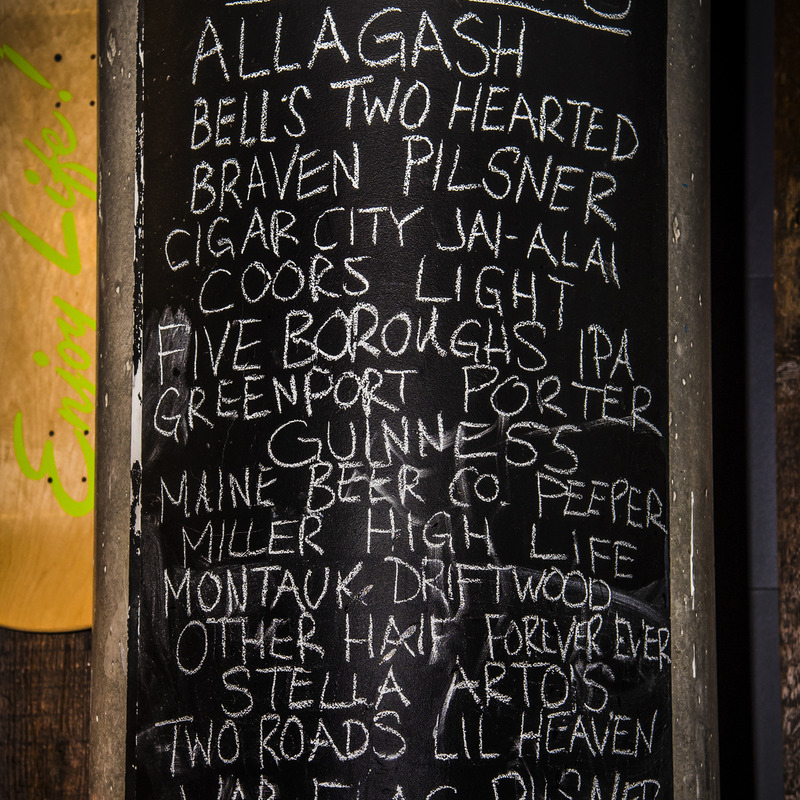 ALLAGASH
BELL'S TWO HEARTED
BRAVEN PILSNER
CIGAR CITY JAI-ALAI
COORS LIGHT
FIVE BOROUGHS IPA
GREENPORT PORTER
GUINNESS
MAINE BEER CO. PEEPER
MILLER HIGH LIFE
MONTAUK DRIFTWOOD
OTHER HALF FOREVER EVER
STELLA ARTOIS
TWO ROADS LIL HEAVEN
WAR FLAG PILSNER
Enjoy Life!